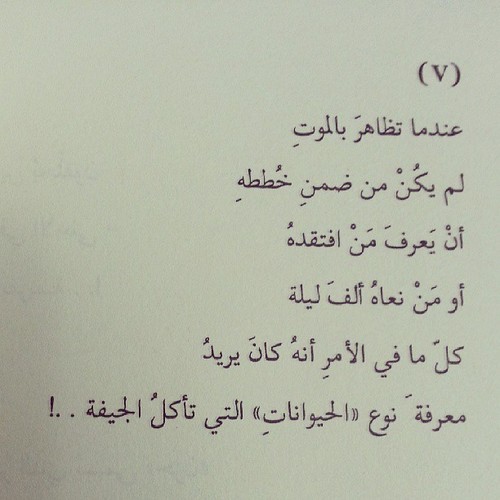 (٧)
عندما تظاهرَ بالموتِ
لم يكُنْ من ضمنِ خُططهِ
أنْ يَعرفَ مَنْ افتقدهُ
أو مَنْ نعاهُ ألفَ ليلة
كلّ ما في الأمرِ أنهُ كانَ يريدُ
معرفةَ نوع «الحيواناتِ» التي تأكلُ الجيفة . .!